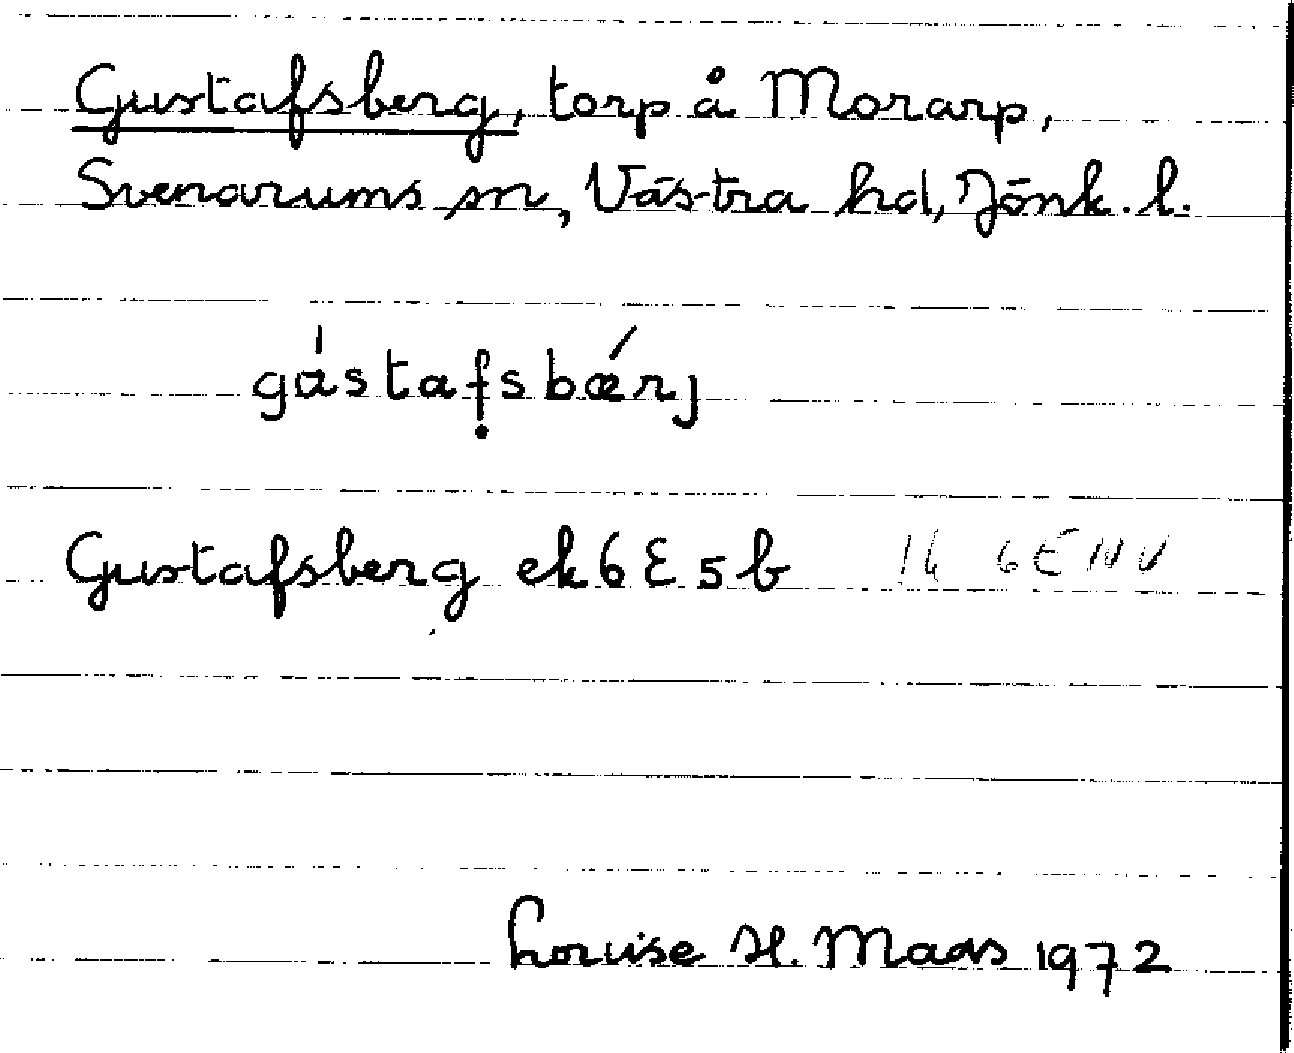 Gustafsberg, torp å Morarp,
Svenarums sn, Västra hd, Jönk. l.
gástafsbǽrj
Gustafsberg ek 6 E 5 b 6E NV
Louise H. Maas 1972